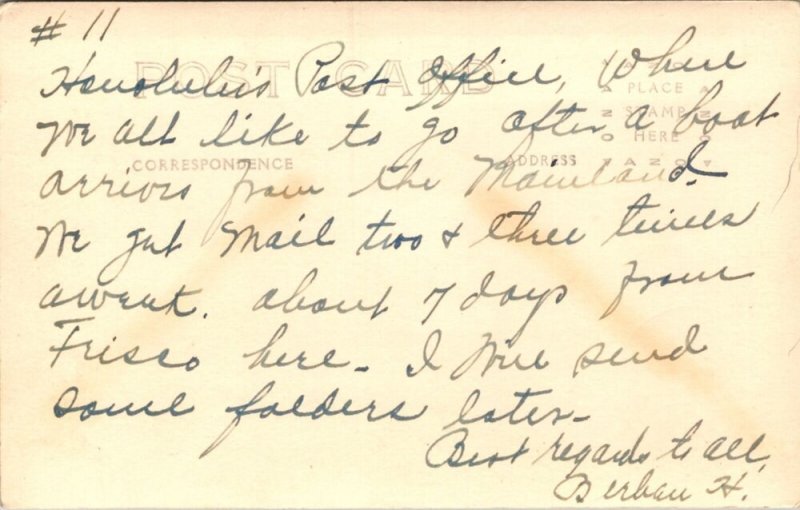 # 11
Honolulu's Post Office, Where
We all like to go after a boat
arrives from the Mainland.
We get Mail two & three times
aweek. about 7 days from
Frisco here - I Will send
some folders later -
Best regards to all,
H.
POST CARD
CORRESPONDENCE
ADDRESS
PLACE
STAMP
HERE
AZO